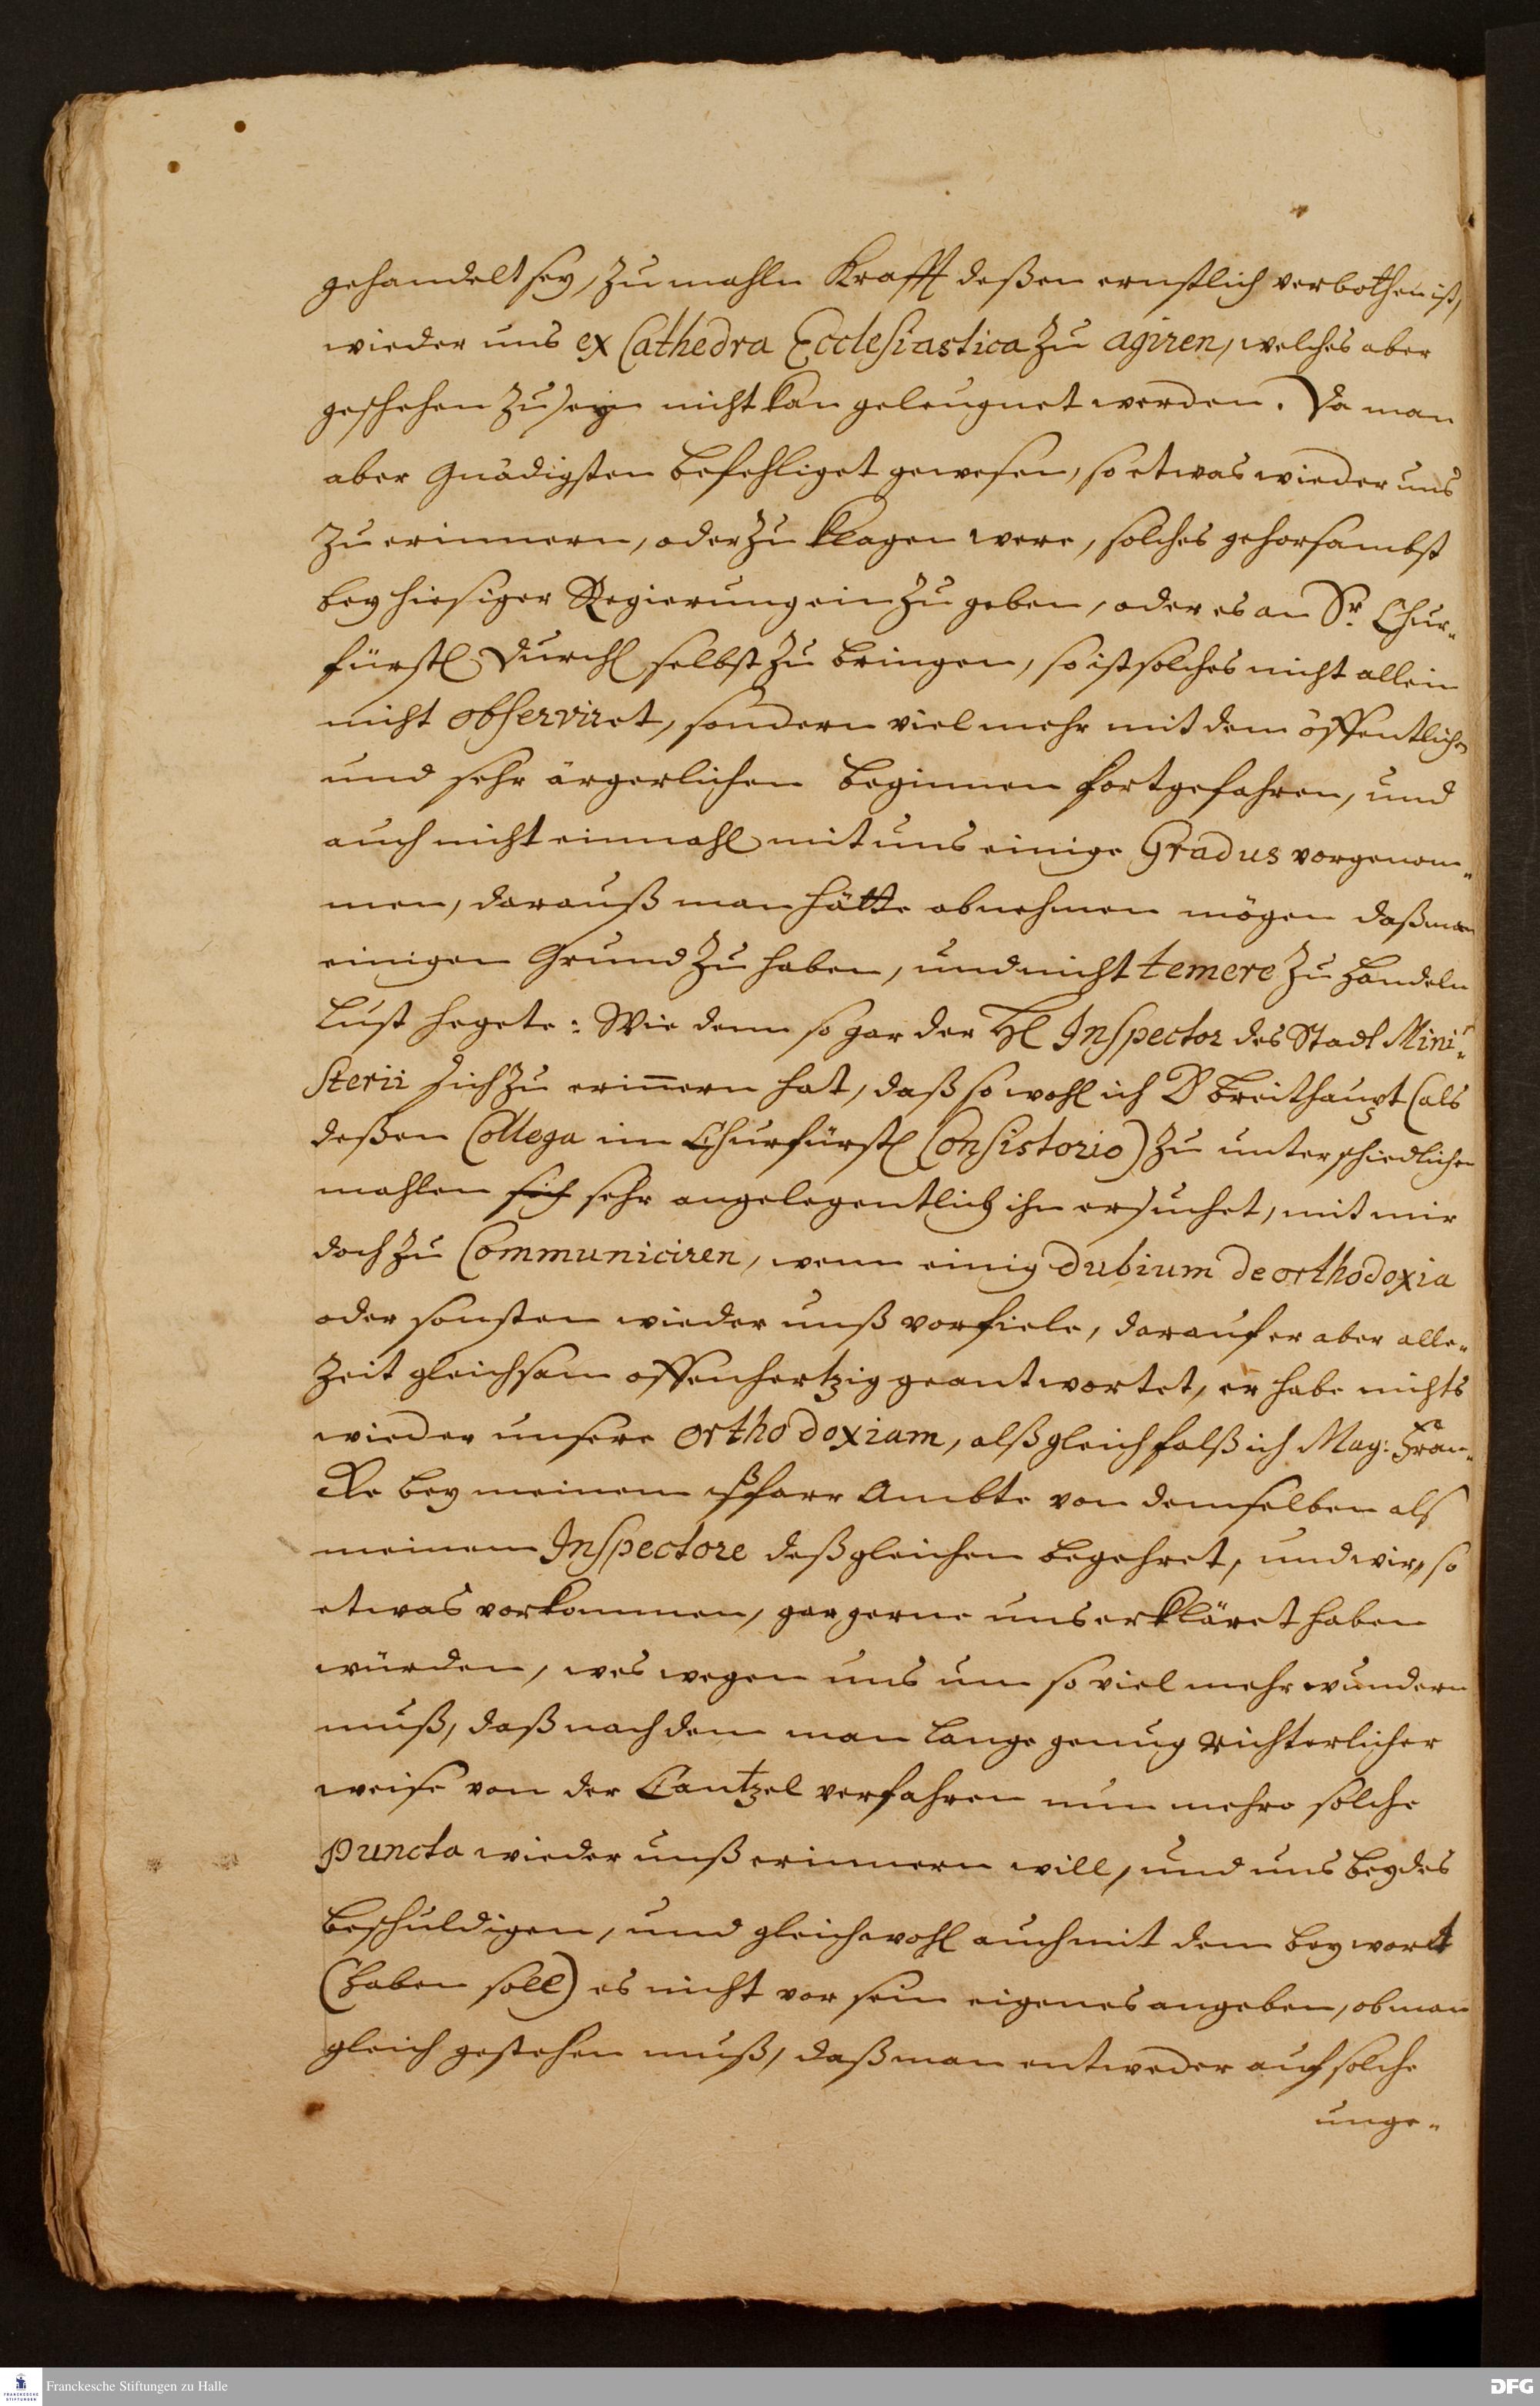 gehandelt sey, zumahln Krafft deßen ernstlich verbothen ist,
wieder uns ex Cathedra Ecclesiastica zu agiren, welches aber
geschehen zu seyn nicht kan geleugnet werden. Da man
aber Gnädigsten befehliget gewesen, so etwas wieder uns
zu erinnern, oder zu klagen were, solches gehorsambst
bey hiesiger Regierung ein zu geben, oder es an Sr. Chur-
fürstl Durchl selbst zu bringen, so ist solches nicht allein
nicht observiret, sondern vielmehr mit dem öffentlichen
und sehr ärgerlichen beginnen fortgefahren, und
auch nicht einmahl mit uns einige Gradus vorgenom-
men, darauß man hätte abnehmen mögen daß man
einigen Grund zu haben, und nicht temere zu handeln
Lust hegete: Wie denn so gar der Hl Inspector des Stadt Mini-
sterii sich zu erinnern hat, daß so wohl ich D Breithaupt (als
deßen Collega im Churfürstl Consistorio) zu unterschiedlichen
mahlen sich sehr angelegentlich ihn ersuchet, mit mir
doch zu Communiciren, wenn einig Dubium de orthodoxia
oder sonsten wieder unß vorfiele, darauf er aber alle-
zeit gleichsam offenhertzig geantwortet, er habe nichts
wieder unsere orthodoxiam, alß gleichfalß ich Mag: Fran-
cke bey meinem Pfarr Ambte von demselben als
meinem Inspectore deßgleichen begehret, und wir, so
etwas vorkommen, gar gerne uns erkläret haben
würden, weswegen uns um so viel mehr wundern
muß, daß nachdem man lange genug richterlicher
weise von der Cantzel verfahren nunmehro solche
puncta wieder unß erinnern will, und uns beydes
beschuldigen, und gleichwohl auch mit dem beywort
(haben soll) es nicht vor sein eigenes angeben, ob man
gleich gestehen muß, daß man entweder auf solche
unge-
Franckesche Stiftungen zu Halle
DFG